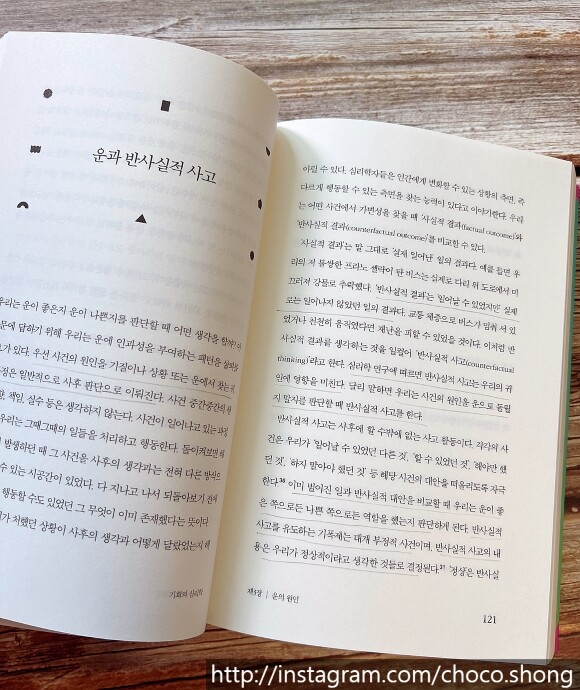 운과 반사실적 사고
우리는 운이 좋은지 운이 나쁜지를 판단할 때 어떤 생각을 할까? 이
문에 답하기 위해 우리는 운에 인과성을 부여하는 패턴을 살펴볼
가 있다. 우선 사건의 원인을 기질이나 상황 또는 운에서 찾는
정은 일반적으로 사후 판단으로 이뤄진다. 사건 중간중간의
책임, 실수 등은 생각하지 않는다. 사건이 일어나고 있는 과정
우리는 그때그때의 일들을 처리하고 행동한다. 돌이켜보면
발생하던 때 그 사건을 사후의 생각과는 전혀 다른 방식으
수 있는 시공간이 있었다. 다 지나고 나서 되돌아보기 전에
행동할 수도 있었던 그 무엇이 이미 존재했다는 뜻이다.
가 처했던 상황이 사후의 생각과 어떻게 달랐었는지 헤
기회의 심리학
아릴 수 있다. 심리학자들은 인간에게 변화할 수 있는 상황의 측면, 즉
다르게 행동할 수 있는 측면을 찾는 능력이 있다고 이야기한다. 우리
는 어떤 사건에서 가변성을 찾을 때 '사실적 결과(factual outcome)'와
'반사실적 결과(counterfactual outcome)'를 비교할 수 있다.
'사실적 결과'는 말 그대로 '실제 일어난' 일의 결과다. 예를 들면 우
리의 저 불쌍한 프라노 셀락이 탄 버스는 실제로 다리 위 도로에서 미
끄러져 강물로 추락했다. '반사실적 결과'는 '일어날 수 있었지만' 실제
로는 일어나지 않았던 일의 결과다. 교통 체증으로 버스가 멈춰 서 있
었거나 천천히 움직였다면 재난을 피할 수 있었을 것이다. 이처럼 반
사실적 결과를 생각하는 것을 일컬어 '반사실적 사고(counterfactual
thinking)'라고 한다. 심리학 연구에 따르면 반사실적 사고는 우리의 귀
인에 영향을 미친다. 달리 말하면 우리는 사건의 원인을 운으로 돌릴
지 말지를 판단할 때 반사실적 사고를 한다.
반사실적 사고는 사후에 할 수밖에 없는 사고 활동이다. 각각의 사
건은 우리가 '일어날 수 있었던 다른 것', '할 수 있었던 것', '해야만 했
던 것', '하지 말아야 했던 것' 등 해당 사건의 대안을 떠올리도록 자극
한다.³⁶ 이미 벌어진 일과 반사실적 대안을 비교할 때 우리는 운이 좋
은 쪽으로든 나쁜 쪽으로든 역할을 했는지 판단하게 된다. 반사실적
사고를 유도하는 기폭제는 대개 부정적 사건이며, 반사실적 사고의 내
용은 우리가 정상적이라고 생각한 것들로 결정된다.³⁷ '정상'은 반사실
제3장 | 운의 원인
121
http://instagram.com/choco.shong